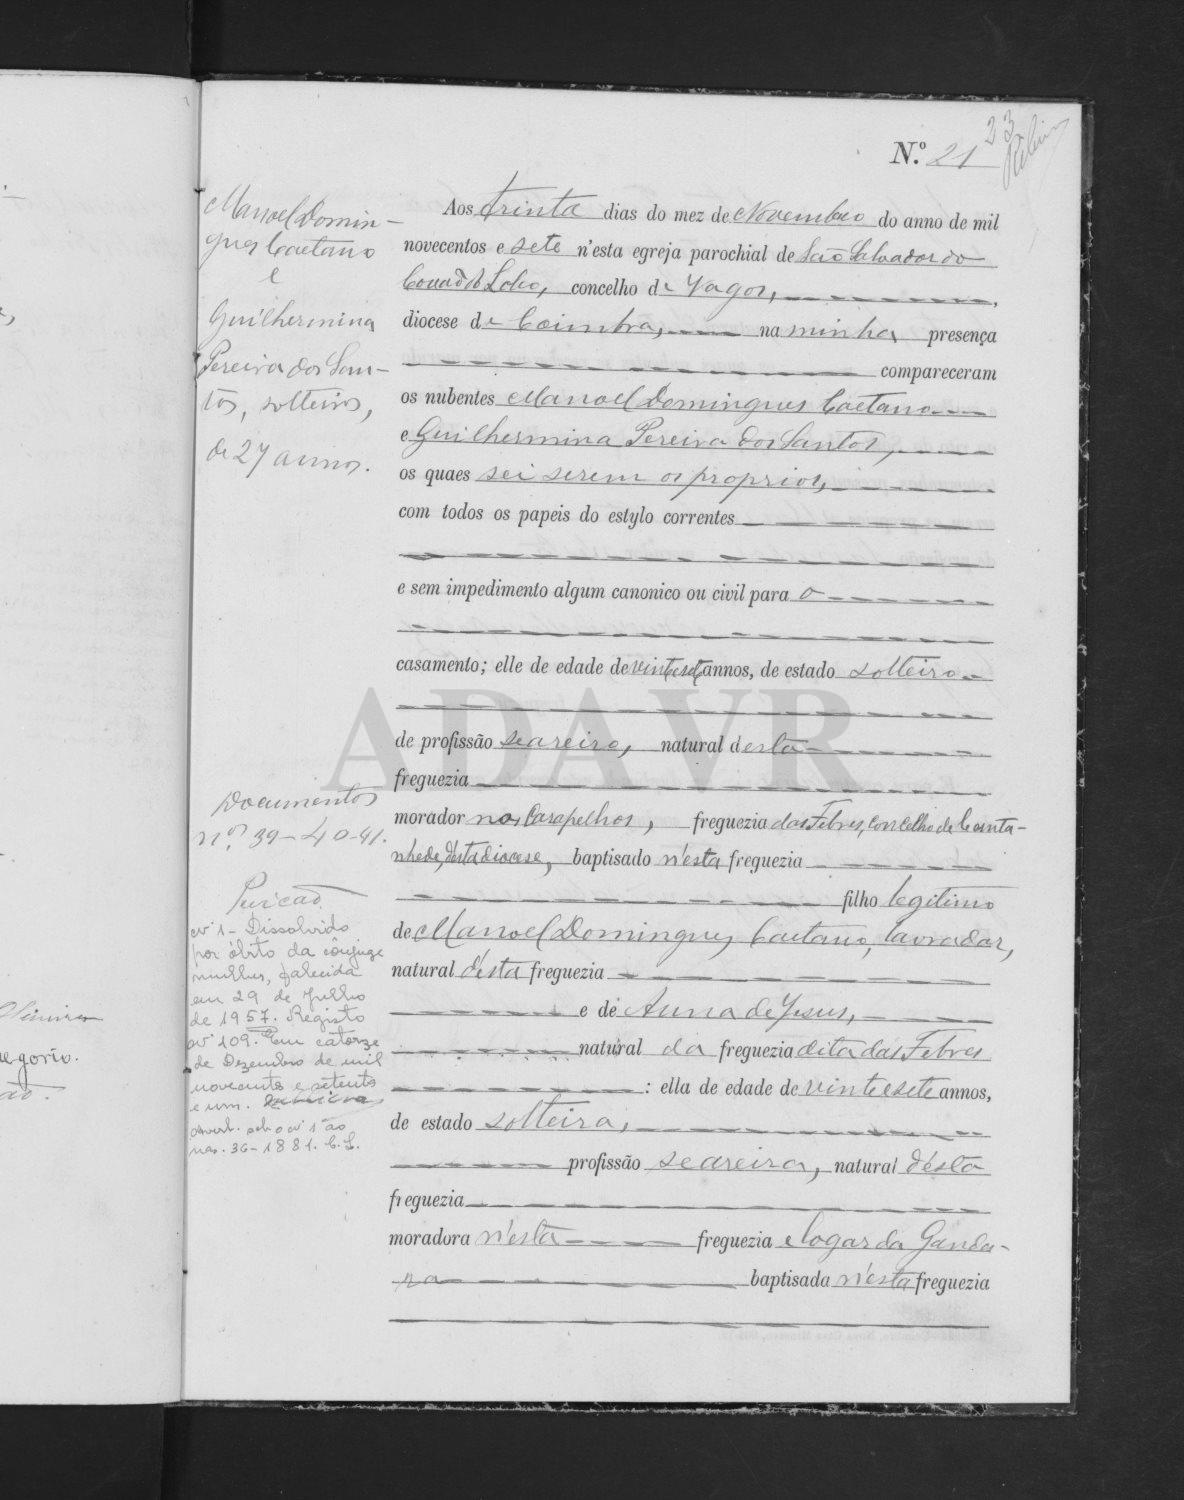 23
Ribeiro
N.º 21
Manoel Domin-
gues Caetano
e
Guilhermina
Pereira dos San-
tos, solteiros,
de 27 annos.
Aos trinta dias do mez de Novembro do anno de mil
novecentos e sete n'esta egreja parochial de São Salvador do
Covão do Lobo, concelho de Vagos,
diocese de Coimbra, na minha presença
compareceram
os nubentes Manoel Domingues Caetano
e Guilhermina Pereira dos Santos,
os quaes sei serem os proprios,
com todos os papeis do estylo correntes
e sem impedimento algum canonico ou civil para o
casamento; elle de edade de vinte sete annos, de estado solteiro
de profissão seareiro, natural desta
freguezia
morador nos Carapelhos, freguezia das Febres, concelho de Canta-
nhede, d'esta diocese, baptisado n'esta freguezia
filho legitimo
de Manoel Domingues Caetano, lavrador,
natural d'esta freguezia
e de Anna de Jesus,
natural da freguezia dita das Febres
: ella de edade de vinte e sete annos,
de estado solteira,
profissão seareira, natural d'esta
freguezia
moradora n'esta freguezia e logar da Ganda-
ra baptisada n'esta freguezia
Documentos
n.os 39-40-41.
nº 1 - Dissolvido
por óbito da cônjuge
mulher, falecida
em 29 de Julho
de 1957. Registo
nº 109. Em catorze
de Dezembro de mil
novecentos e setenta
e um.
Averb. sob o nº 1 ao
nas. 36-1881. C. L.
egorio.
ADAVR